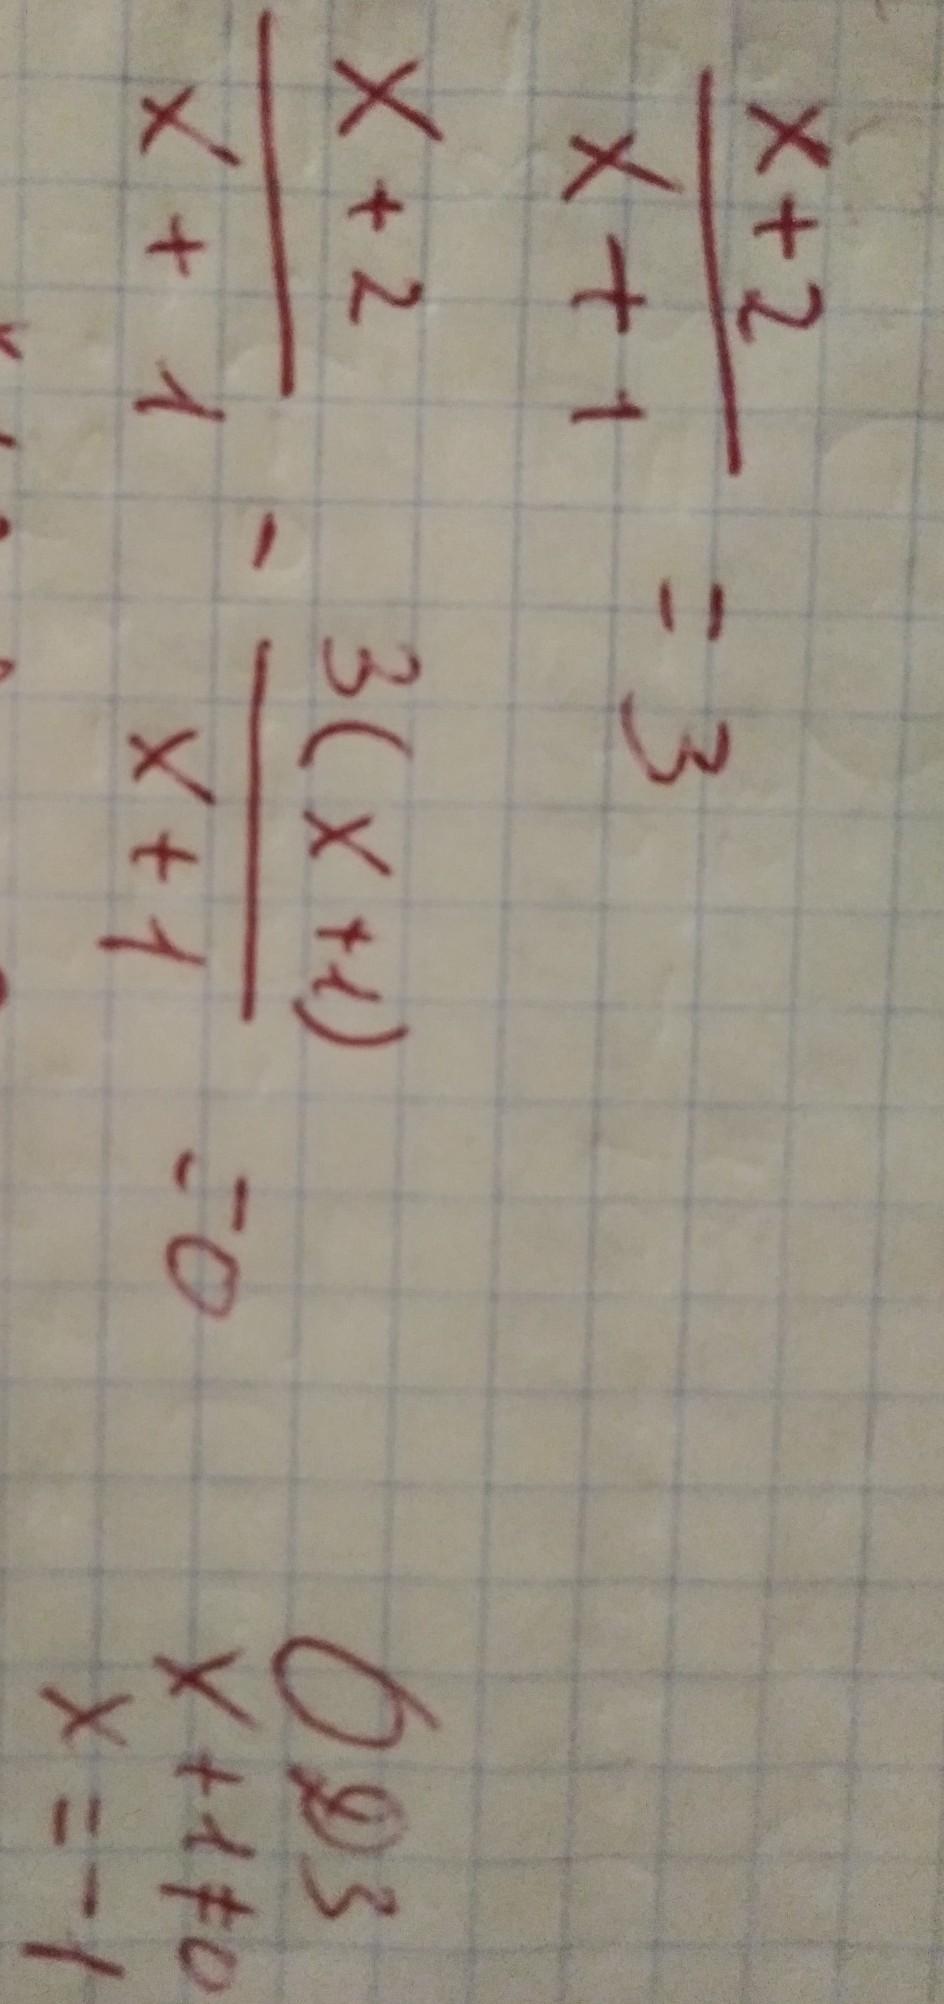 x+2
x+1 = 3
x+2
x+1 - 3(x+1)
x+1 = 0
ОДЗ
x+1≠0
x=-1